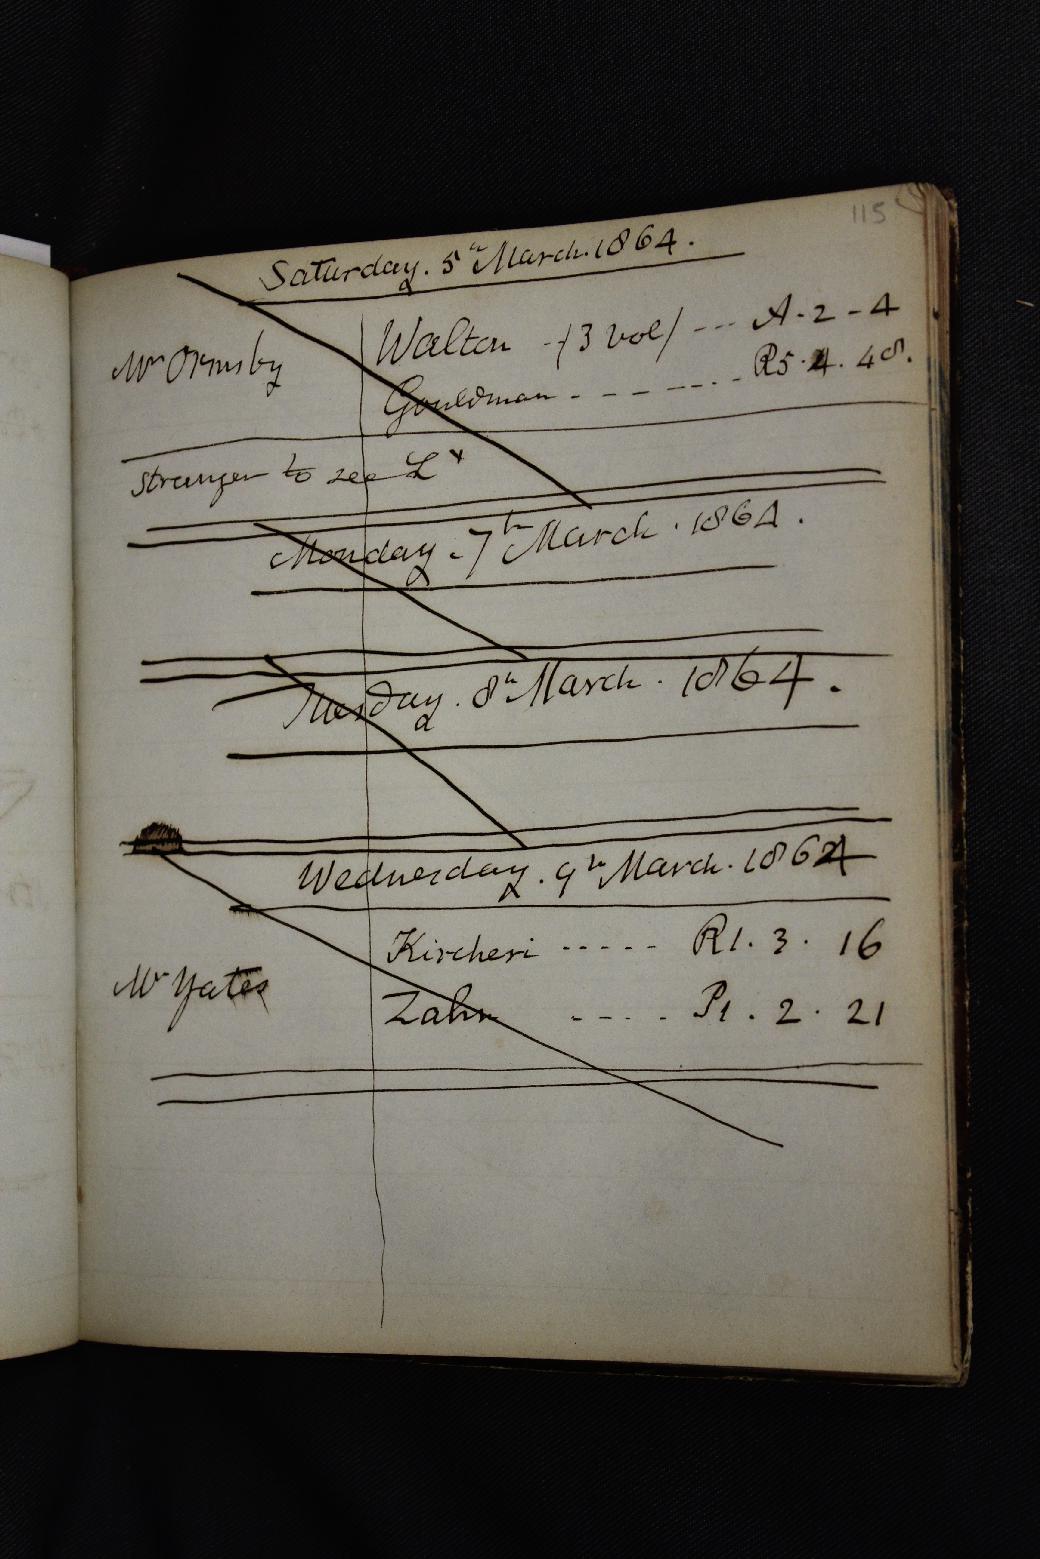 115
Saturday. 5th March. 1864.
Mr Ormsby
Walton - (3 vol) --- A-2-4
Gouldman - - - - - - - R5.4.48.
Stranger to see Ly
Monday. 7th March. 1864.
Tuesday. 8th March. 1864.
Wednesday. 9th March. 1864
Mr Yates
Kircheri ----- R1. 3. 16
Zahn ---- P1. 2. 21